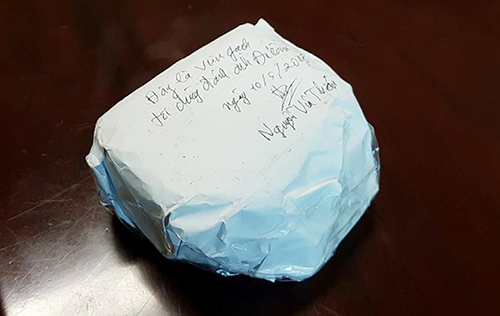 Đây là viên gạch
tôi dùng đánh anh Điểm
ngày 10/5/2018
Nguyễn Vũ Thuần